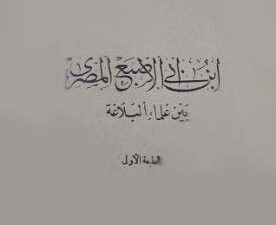 ابن أبي الإصبع المصرى
بين علماء البلاغة
الطبعة الأولى